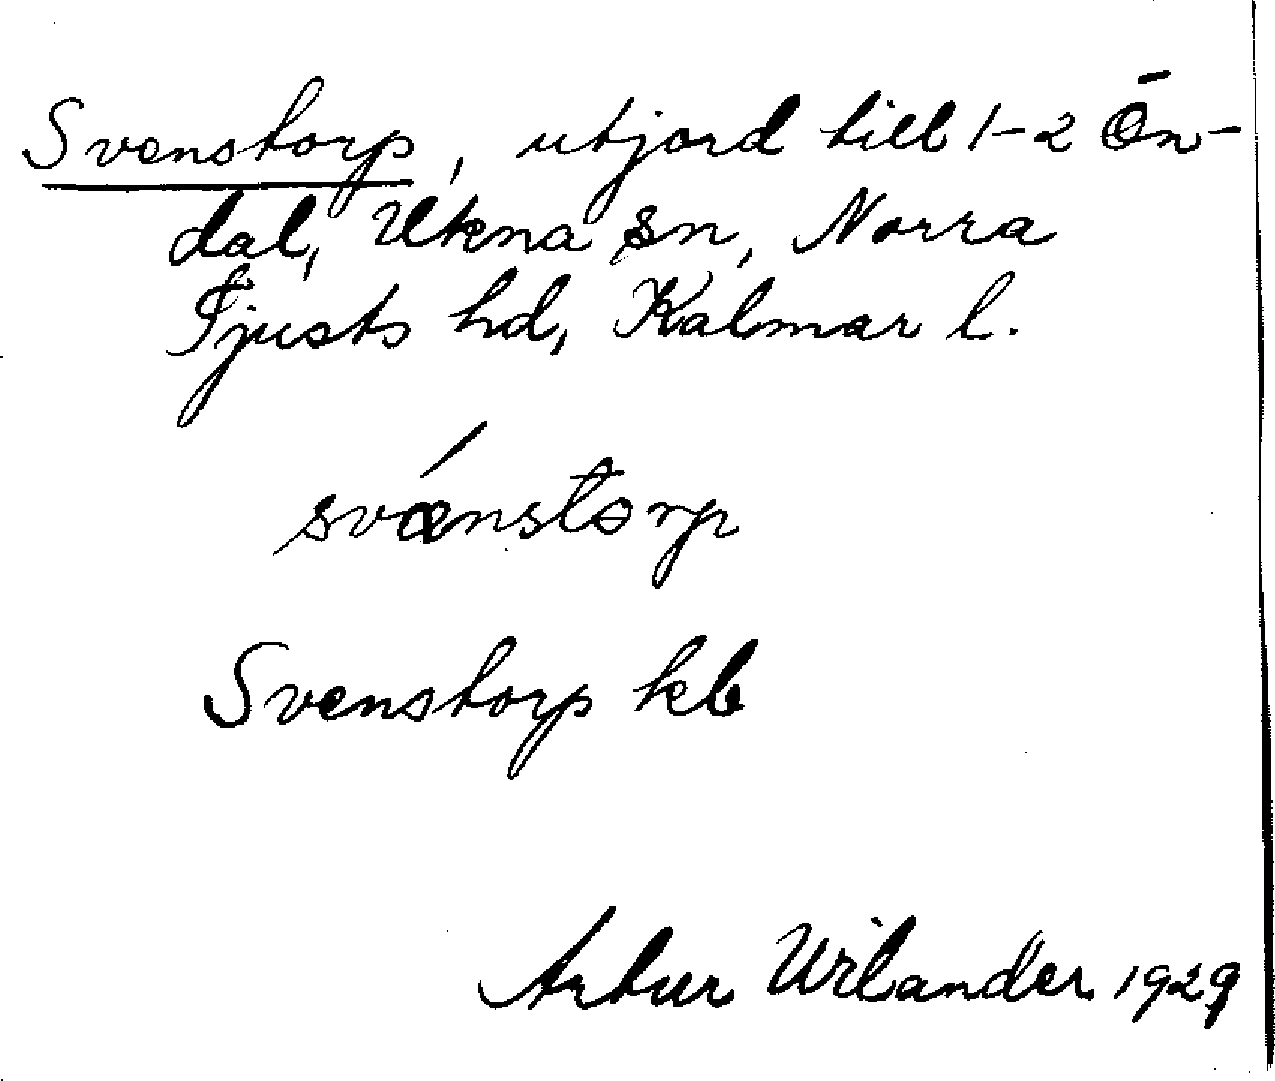 Svenstorp, utjord till 1-2 Ön-
dal, Ukna sn, Norra
Tjusts hd, Kalmar l.
svænstorp
Svenstorp kb
Artur Wilander 1929